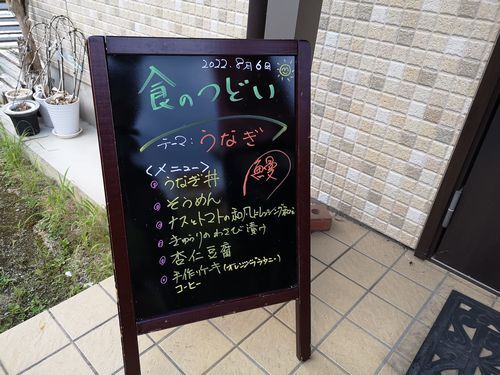 2022.8月6日
食のつどい
テーマ:うなぎ
鰻
<メニュー>
うなぎ丼
そうめん
ナスとトマトの和風ドレッシング和え
きゅうりのわさび漬け
杏仁豆腐
手作りケーキ(オレンジブラウニー)
コーヒー